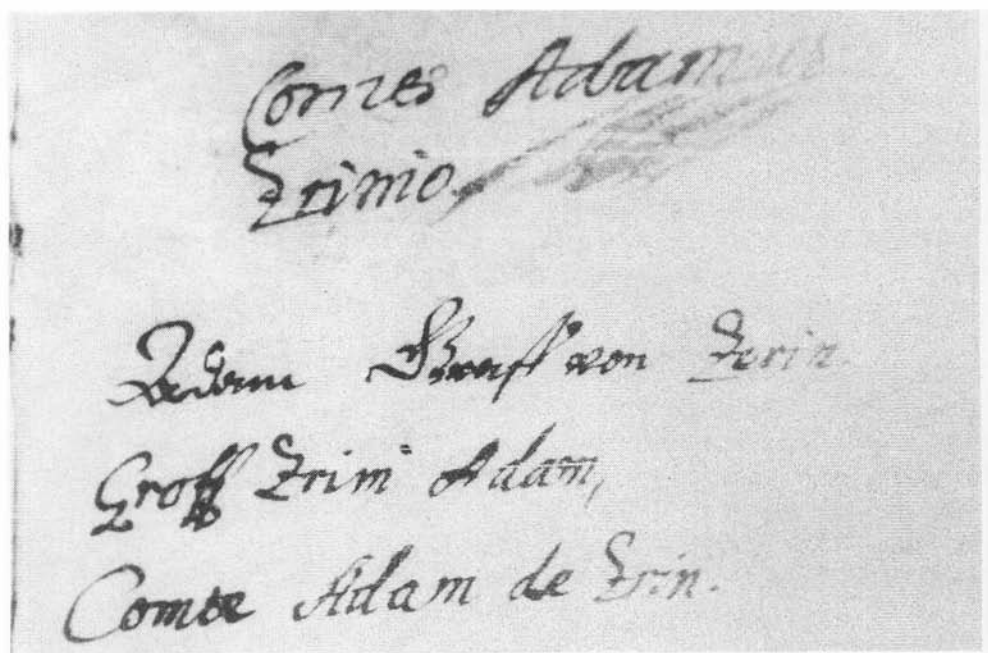 Comes Adamus
Zrinio
Adam Graff von Zerin.
Groff Zrini Adam,
Comte Adam de Zrin.